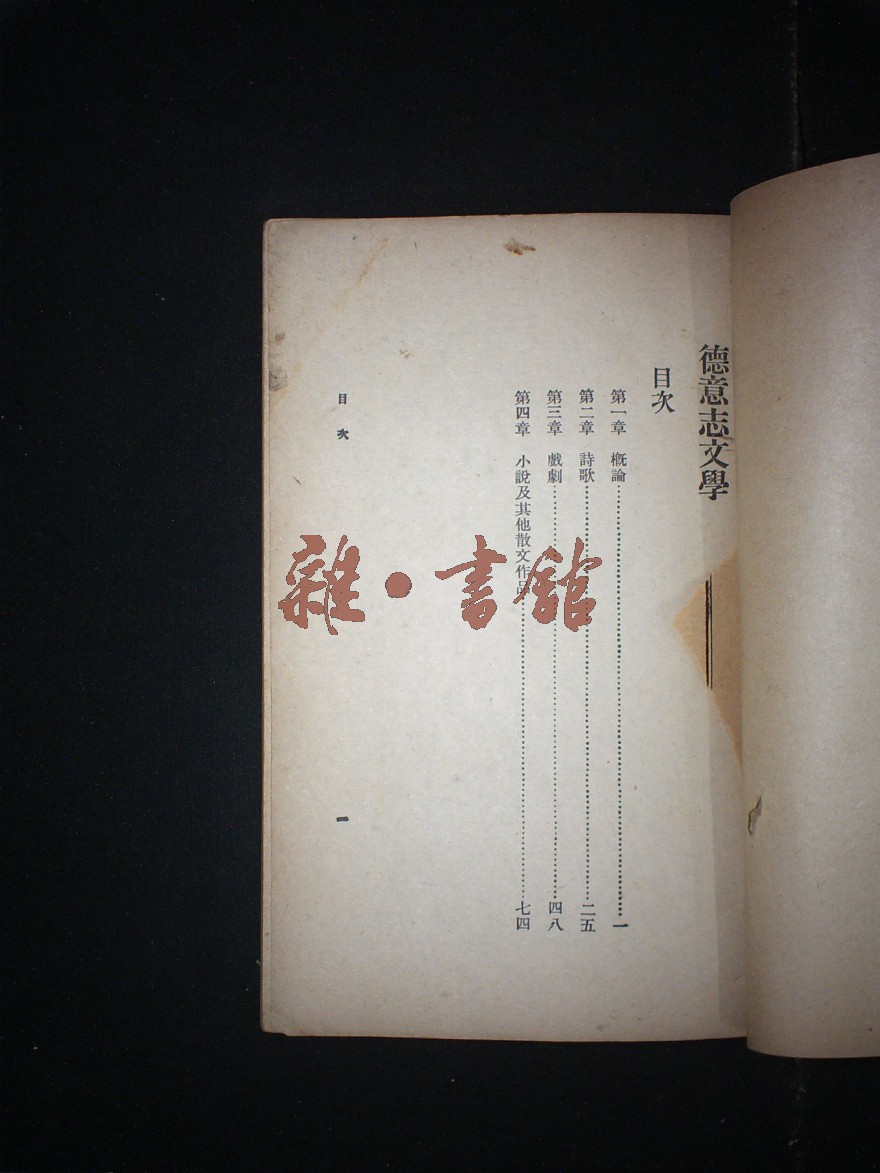 德意志文學
目次
第一章 概論……一
第二章 詩歌……二五
第三章 戲劇……四八
第四章 小說及其他散文作品……七四
目次
一
雜·書館